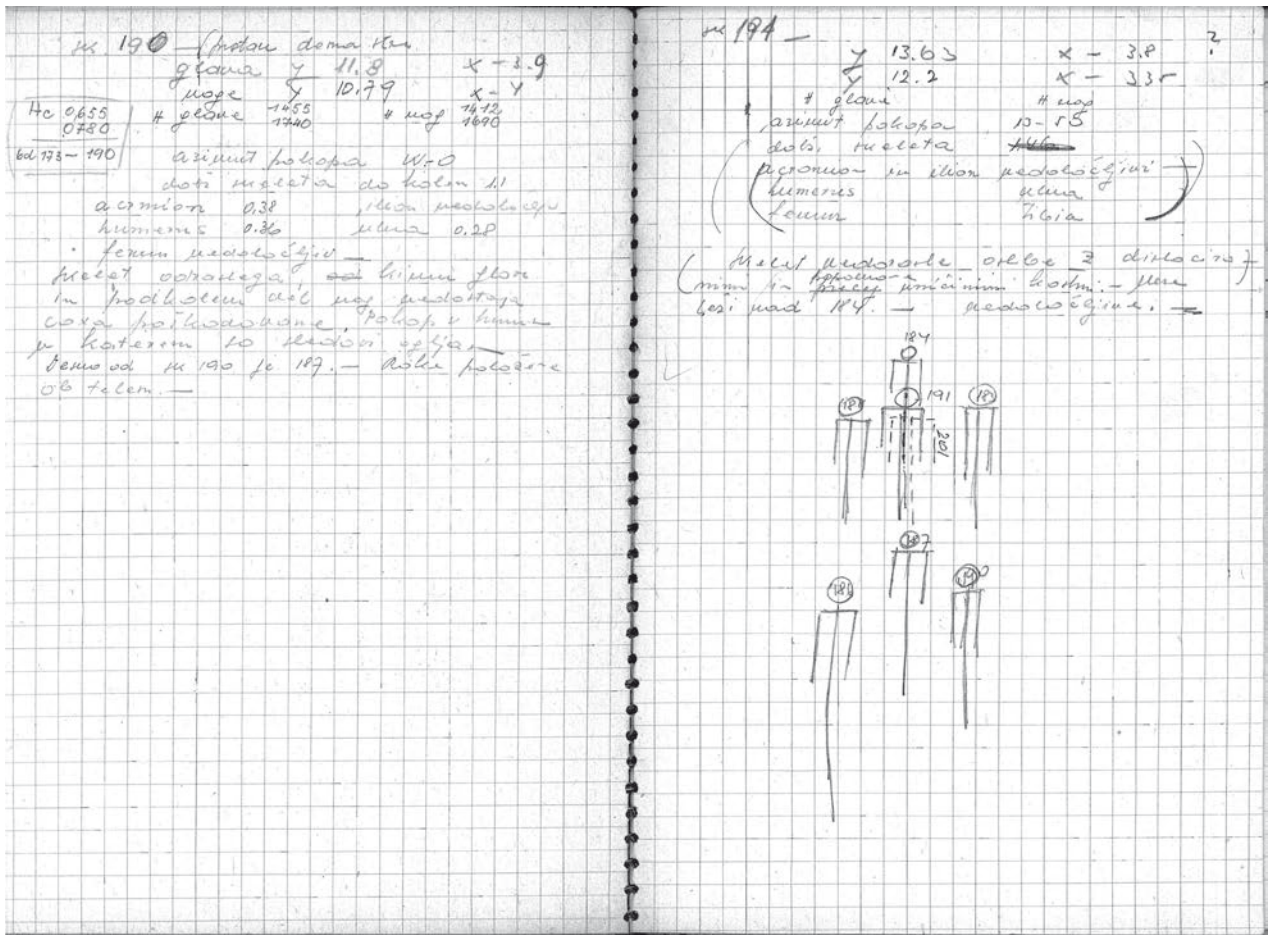 sk 190 — (
glava y 11.8 x - 3.9
noge y 10.79 x - 4
Hc 0,655
0780
bd 173 - 190
# glave 1455
1740
# nog 1412
1690
azimut pokopa W-O
dolž. skeleta do kolen 1.1
acrmion 0,38 , ilion nedoločlj
humerus 0.36 ulna 0.28
femur nedoločljiv —
skelet odraslega,
in podkolen del nog nedostaja
coxa poškodovane. Pokop v humus
v katerem so sledovi oglja. —
Desno od sk 190 je 187. — Roke položene
ob telem. —
sk 191 —
y 13.63 x - 3.8 ?
y 12.2 x - 3.35
# glavi # nog
azimut pokopa 13-55
dolž. skeleta
acromion in ilion nedoločljivi
humerus ulna
femur tibia
skelet nedorasle osebe z dislocira-
nimi in uničenimi kostmi. —
leži nad 184. — nedoločljive. —
184
191
201
18
187
190